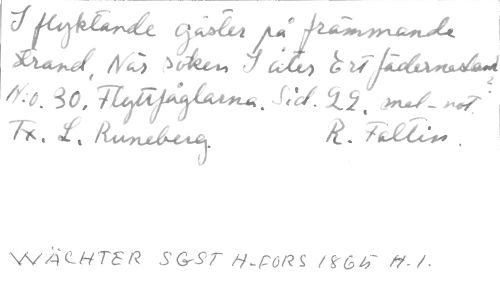 I flyktande gäster på främmande
strand, När söken I åter Ert fädernesland?
N:o. 30. Flyttfåglarna. Sid. 22. mel-not.
Tx. L. Runeberg. R. Faltin.
WÄCHTER SGST H-FORS 1865 H.1.